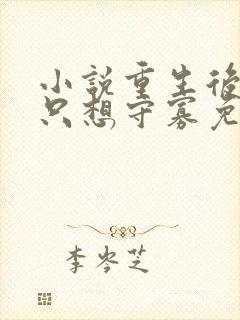 小說重生後
只想守寡免
李岑芝